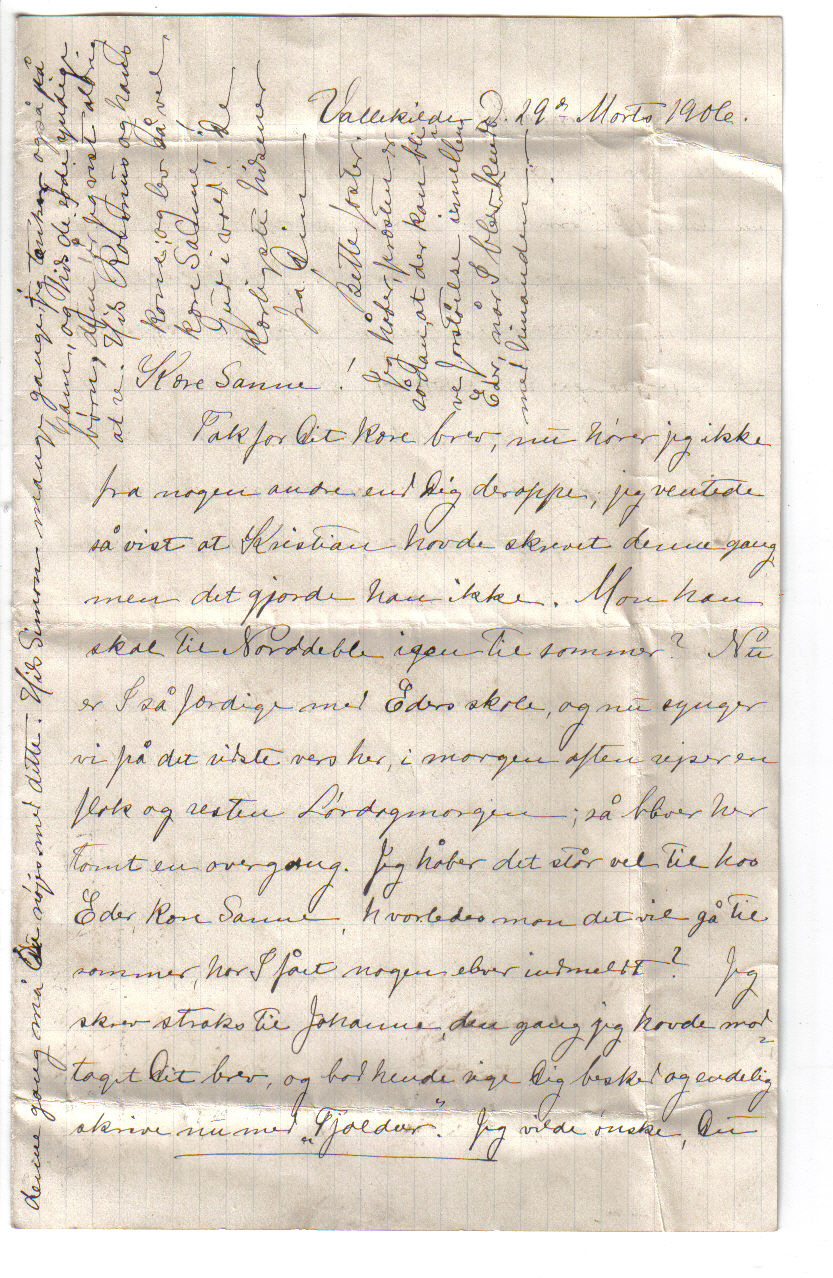 Vallekilde d. 29de Marts 1906.
Kære Sanne!
Tak for Dit kære brev, nu hører jeg ikke
fra nogen andre end Dig deroppe; jeg ventede
så vist at Kristian havde skrevet denne gang,
men det gjorde han ikke. Mon han
skal til Norddeble igen til sommer? Nu
er I så færdige med Eders skole, og nu synger
vi på det sidste vers her, i morgen aften rejser en
flok og resten Lørdagmorgen; så bliver her
tomt en overgang. Jeg håber det står vel til hos
Eder, kære Sanne, hvorledes mon det vil gå til
sommer, har I fået nogen elever indmeldt? Jeg
skrev straks til Johanne, den gang jeg havde mod-
taget Dit brev, og bad hende sige Dig besked og endelig
skrive nu med „Fjoldur“. Jeg vilde ønske, Du
denne gang må Du nøjes med dette. Hils Simon mange gange, jeg tænker også på
ham, og hils de søde yndige
børn, dem får jeg vist aldrig
at se. Hils Rasmus og hans
kone, og lev så vel
kære Sanne!
Gud i vold! De
kærligste hilsener
fra Din
Bette søster.
Jeg håber, præsten er
sådan, at der kan bli-
ve forståelse imellem
Eder, når I blev kendt
med hinanden.